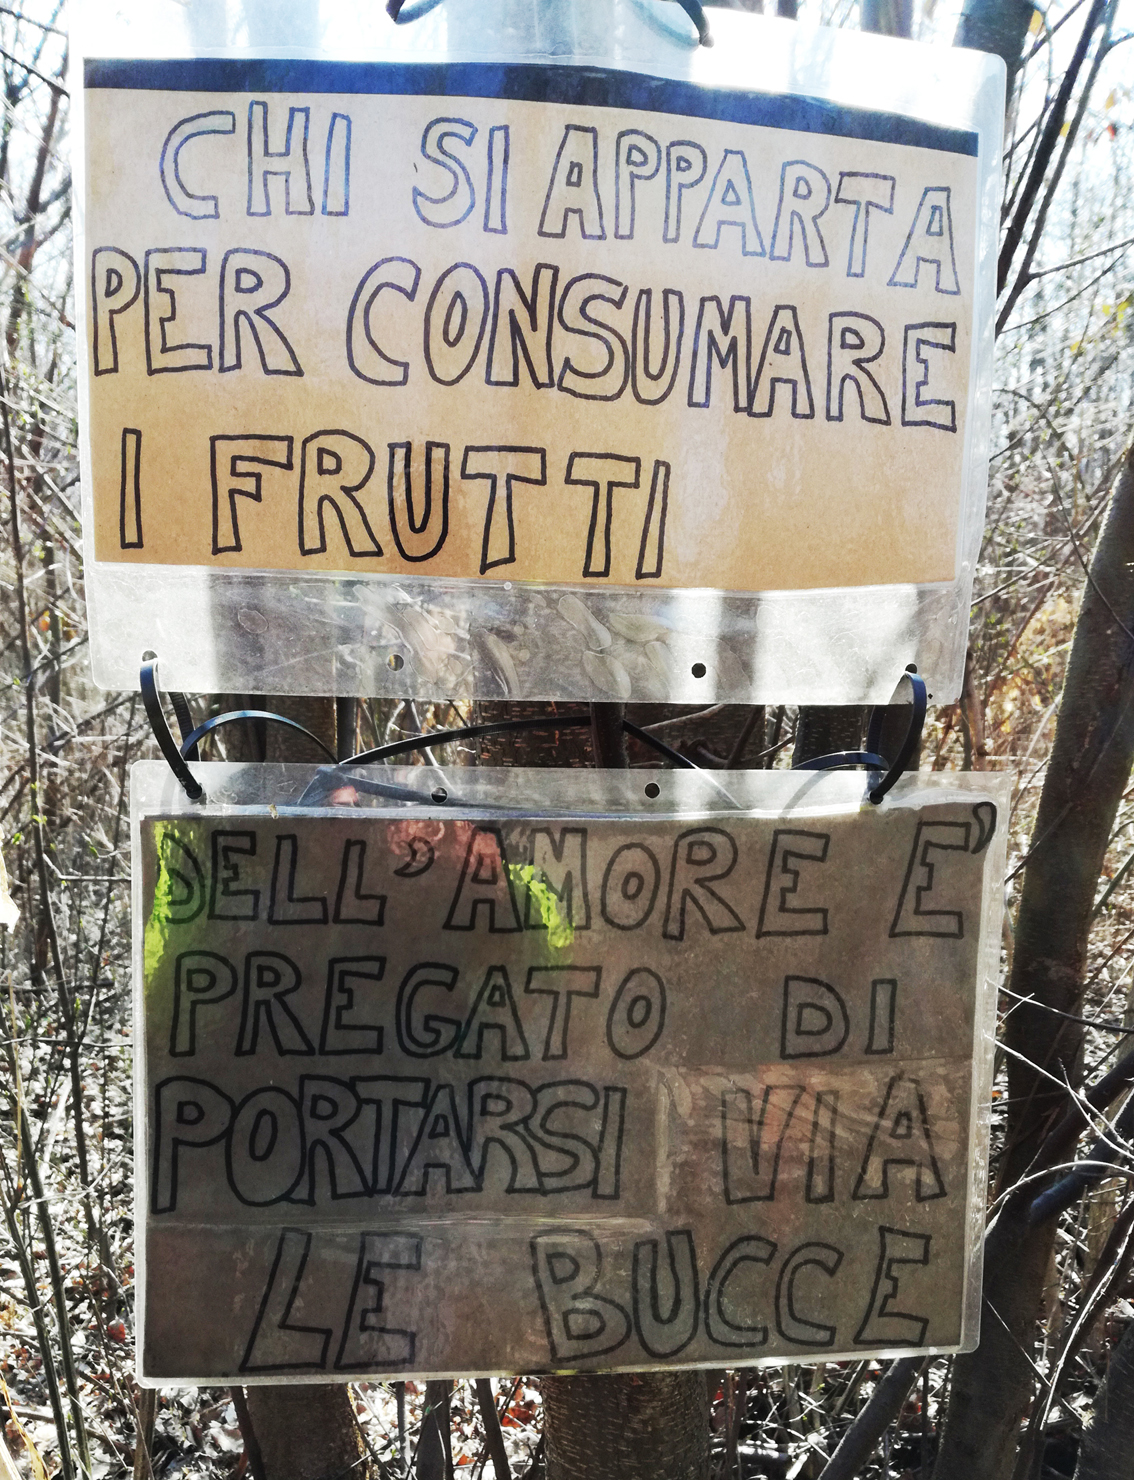 CHI SI APPARTA
PER CONSUMARE
I FRUTTI
DELL'AMORE E'
PREGATO DI
PORTARSI VIA
LE BUCCE